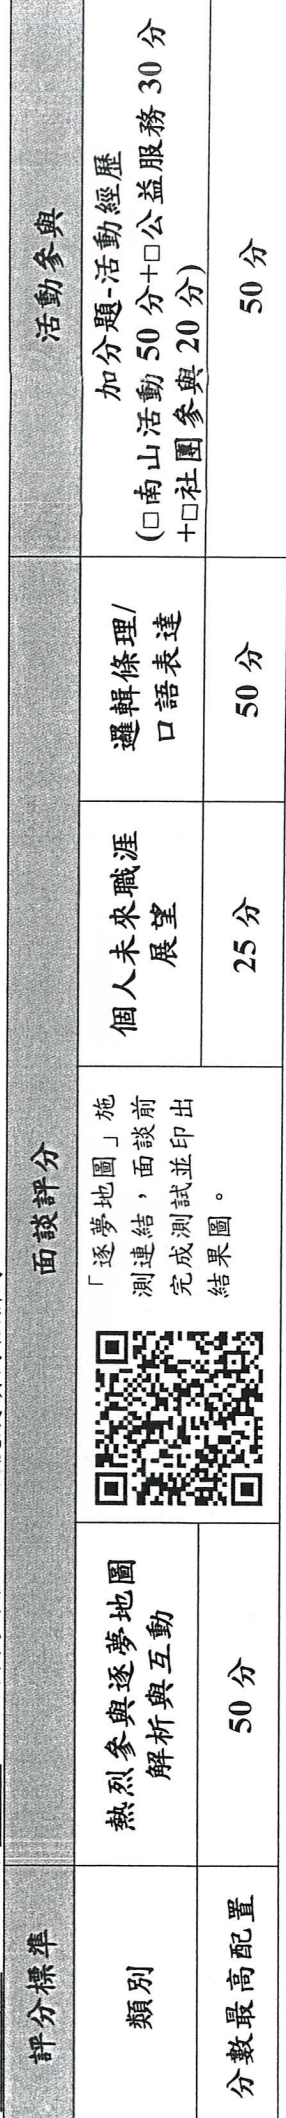 評分標準
面談評分
活動參與
類別
熱烈參與逐夢地圖
解析與互動
「逐夢地圖」施
測連結，面談前
完成測試並印出
結果圖。
個人未來職涯
展望
邏輯條理/
口語表達
加分題-活動經歷
(□南山活動 50 分+□公益服務 30 分
+□社團參與 20 分)
分數最高配置
50 分
25 分
50 分
50 分